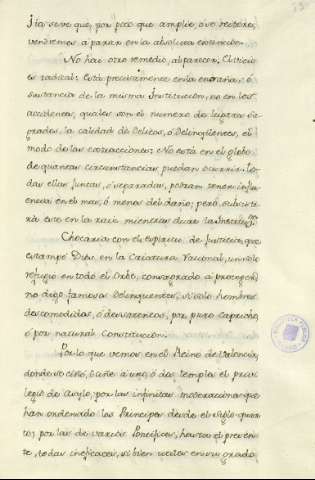 Ita se ve que, por poco que amplie, ò se restrixe,
vendremos a parar en la absoluta extincion.
No hai otro remedio, al parecer. El vicio
es radical: está precisamente en la entraña, ò
sustancia de la misma Institucion, no en los
accidentes, quales son el numero de lugares Sa-
grados, la calidad de Delitos, ò Delinqüentes, el
modo de las extracciones: No está en el globo
de quantas circunstancias puedan ocurrir. To-
das ellas juntas, ò separadas, podran tener influ-
encia en el mas, ò menos del daño; pero subsisti-
rá este en la raiz mientras dure la Institucion.
Chocaria con el espiritu de Justicia, que
estampó Dios en la Criatura racional, un solo
refugio en todo el Orbe, consagrado a proteger,
no digo famosos Delinquentes, si solo hombres
descomedidos, ò desatentos, por puro capricho,
ò por natural constitucion.
Por lo que vemos en el Reino de Valencia,
donde se ciñó, à uno, ò dos templos el privi-
legio de Asylo, por las infinitas moderaciones que
han ordenado los Principes desde el siglo quar-
to, por las de varios Pontifices, hasta el presen-
te todas ineficaces, si bien unas en un grado,